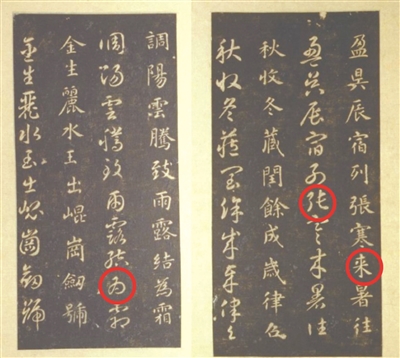 盈昃辰宿列張寒来暑往
盈昃辰宿列張寒来暑往
秋收冬藏閏餘成歲律召
秋收冬藏閏餘成歲律召
調陽雲騰致雨露結為霜
調陽雲騰致雨露結為霜
金生麗水玉出崐崗劔號
金生麗水玉出崐崗劔號